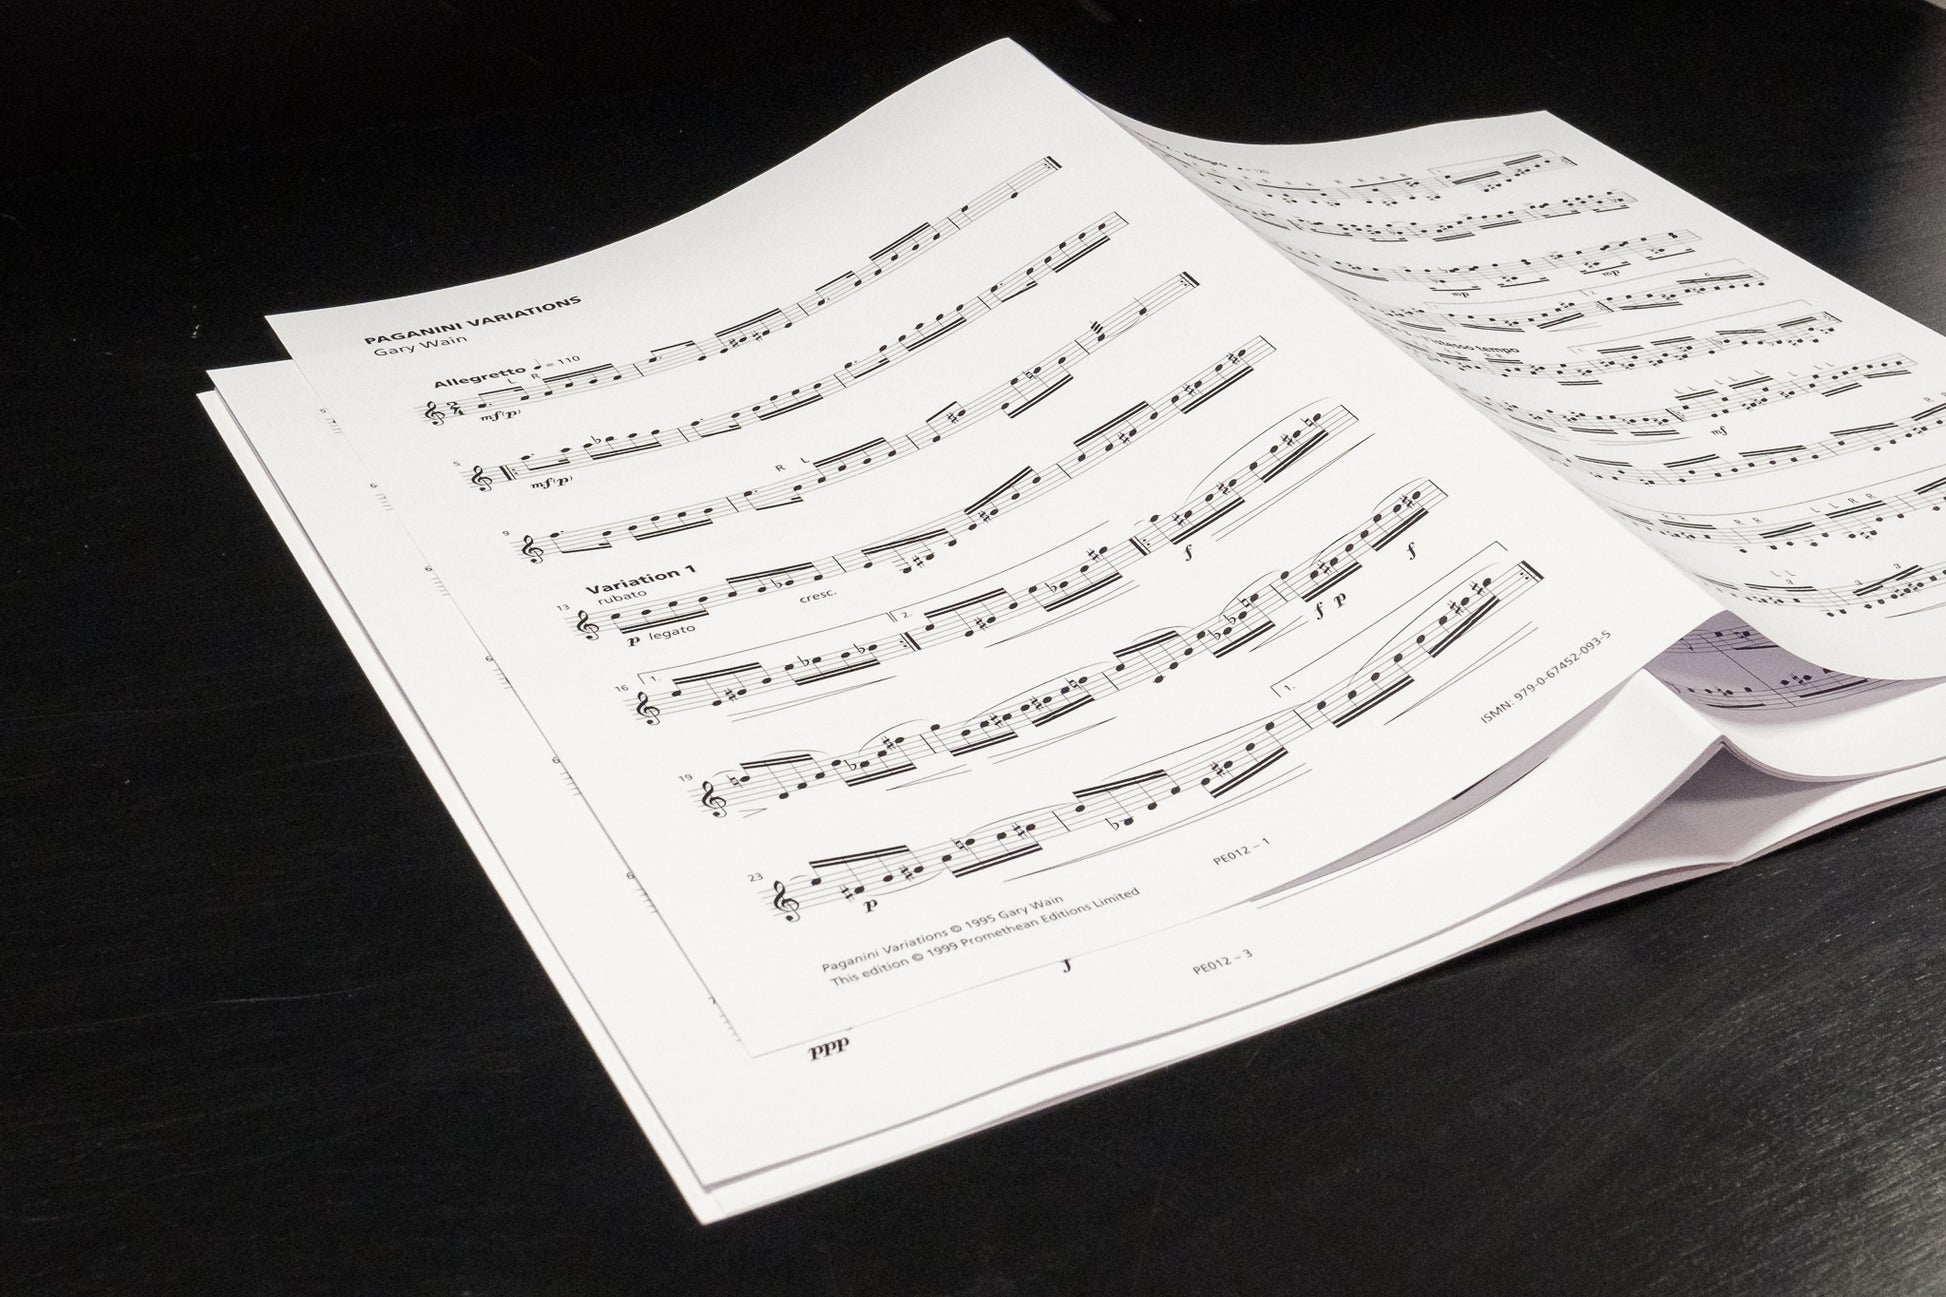 PAGANINI VARIATIONS
Gary Wain
Allegretto ♩ = 110
L R
mf (p)
5
mf (p)
R L
9
Variation 1
rubato
13
p legato
cresc.
1.
2.
16
f
19
f p
f
1.
23
p
Paganini Variations © 1995 Gary Wain
This edition © 1999 Promethean Editions Limited
PE012 – 1
ISMN: 979-0-67452-093-5
ppp
PE012 – 3
R R R R
mp
mp
6
Istesso tempo
L L L L L L
mf
R R
R R L R R
3 3 3